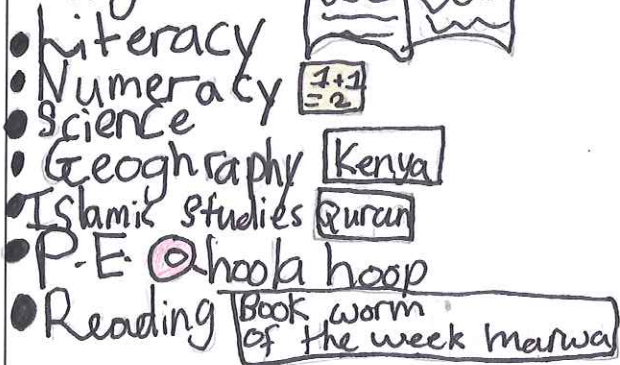 Literacy
Numeracy 1+1
= 2
Science
Geoghraphy Kenya
Islamic Studies Quran
P.E. hoola hoop
Reading Book worm
of the week marwa